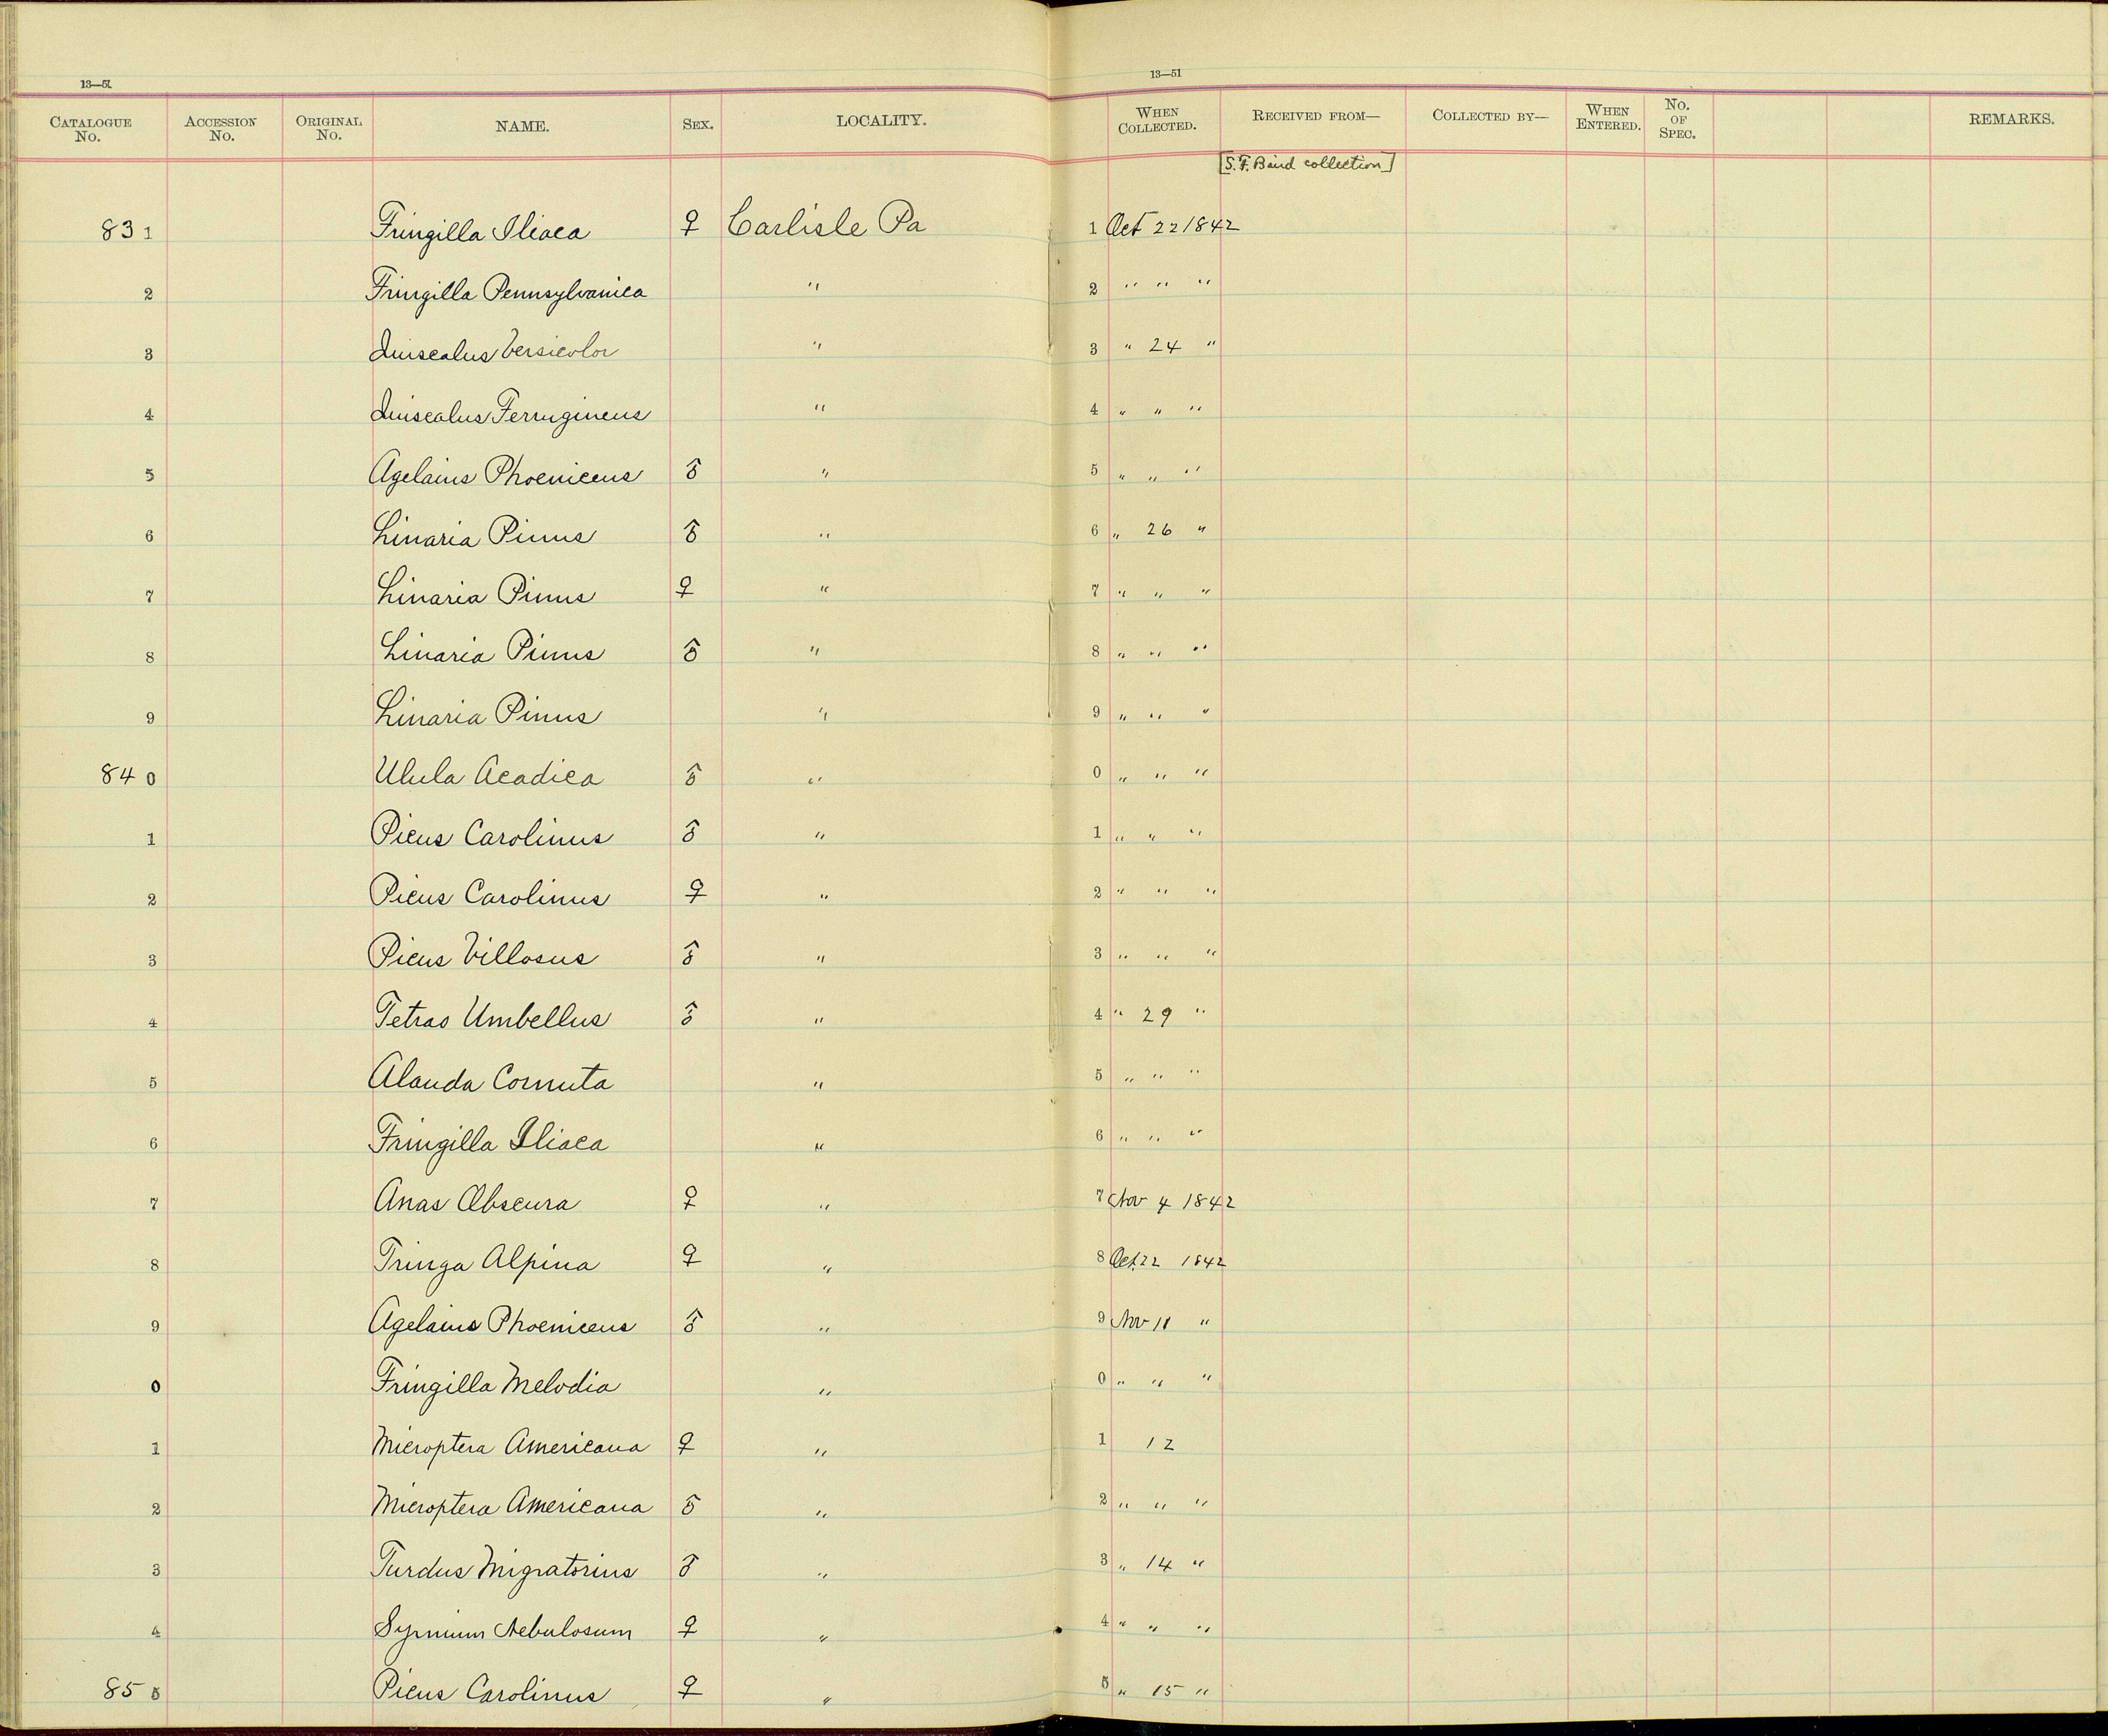 13—51 13—51
CATALOGUE No. ACCESSION No. ORIGINAL No. NAME. SEX. LOCALITY. WHEN COLLECTED. RECEIVED FROM— COLLECTED BY— WHEN ENTERED. No. OF SPEC. REMARKS.
[S. F. Baird collection]
831 Fringilla Iliaca ♀ Carlisle Pa 1 Oct 22 1842
2 Fringilla Pennsylvanica " 2 " " "
3 Quiscalus Versicolor " 3 " 24 "
4 Quiscalus Ferrugineus " 4 " " "
5 Agelaius Phoeniceus ♂ " 5 " " "
6 Linaria Pinus ♂ " 6 " 26 "
7 Linaria Pinus ♀ " 7 " " "
8 Linaria Pinus ♂ " 8 " " "
9 Linaria Pinus " 9 " " "
840 Ulula Acadica ♂ " 0 " " "
1 Picus Carolinus ♂ " 1 " " "
2 Picus Carolinus ♀ " 2 " " "
3 Picus Villosus ♂ " 3 " " "
4 Tetrao Umbellus ♂ " 4 " 29 "
5 Alauda Cornuta " 5 " " "
6 Fringilla Iliaca " 6 " " "
7 Anas Obscura ♀ " 7 Nov 4 1842
8 Tringa Alpina ♀ " 8 Oct 22 1842
9 Agelaius Phoeniceus ♂ " 9 Nov 11 "
0 Fringilla Melodia " 0 " " "
1 Microptera Americana ♀ " 1 12
2 Microptera Americana ♂ " 2 " " "
3 Turdus Migratorius ♂ " 3 " 14 "
4 Syrnium Nebulosum ♀ " 4 " " "
855 Picus Carolinus ♀ " 5 " 15 "